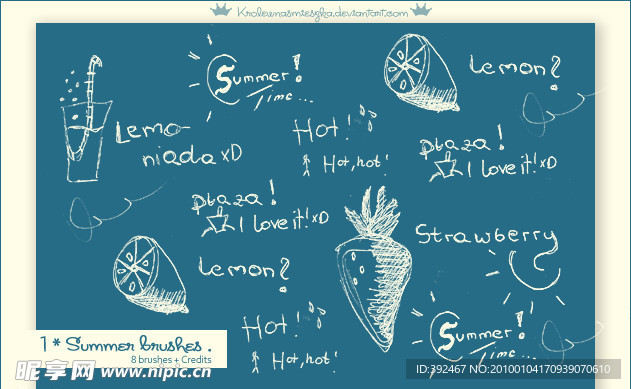 Krolewnasmieszka.deviantart.com
Summer!
Time...
Lemon?
Lemo-
niada xD
Hot!
Hot, hot!
plaza!
I love it! xD
plaza!
I love it! xD
Strawberry
Lemon?
Hot!
Hot, hot!
Summer!
1 * Summer brushes .
8 brushes + Credits
昵享网 www.nipic.cn
ID:392467 NO:20100104170939070610